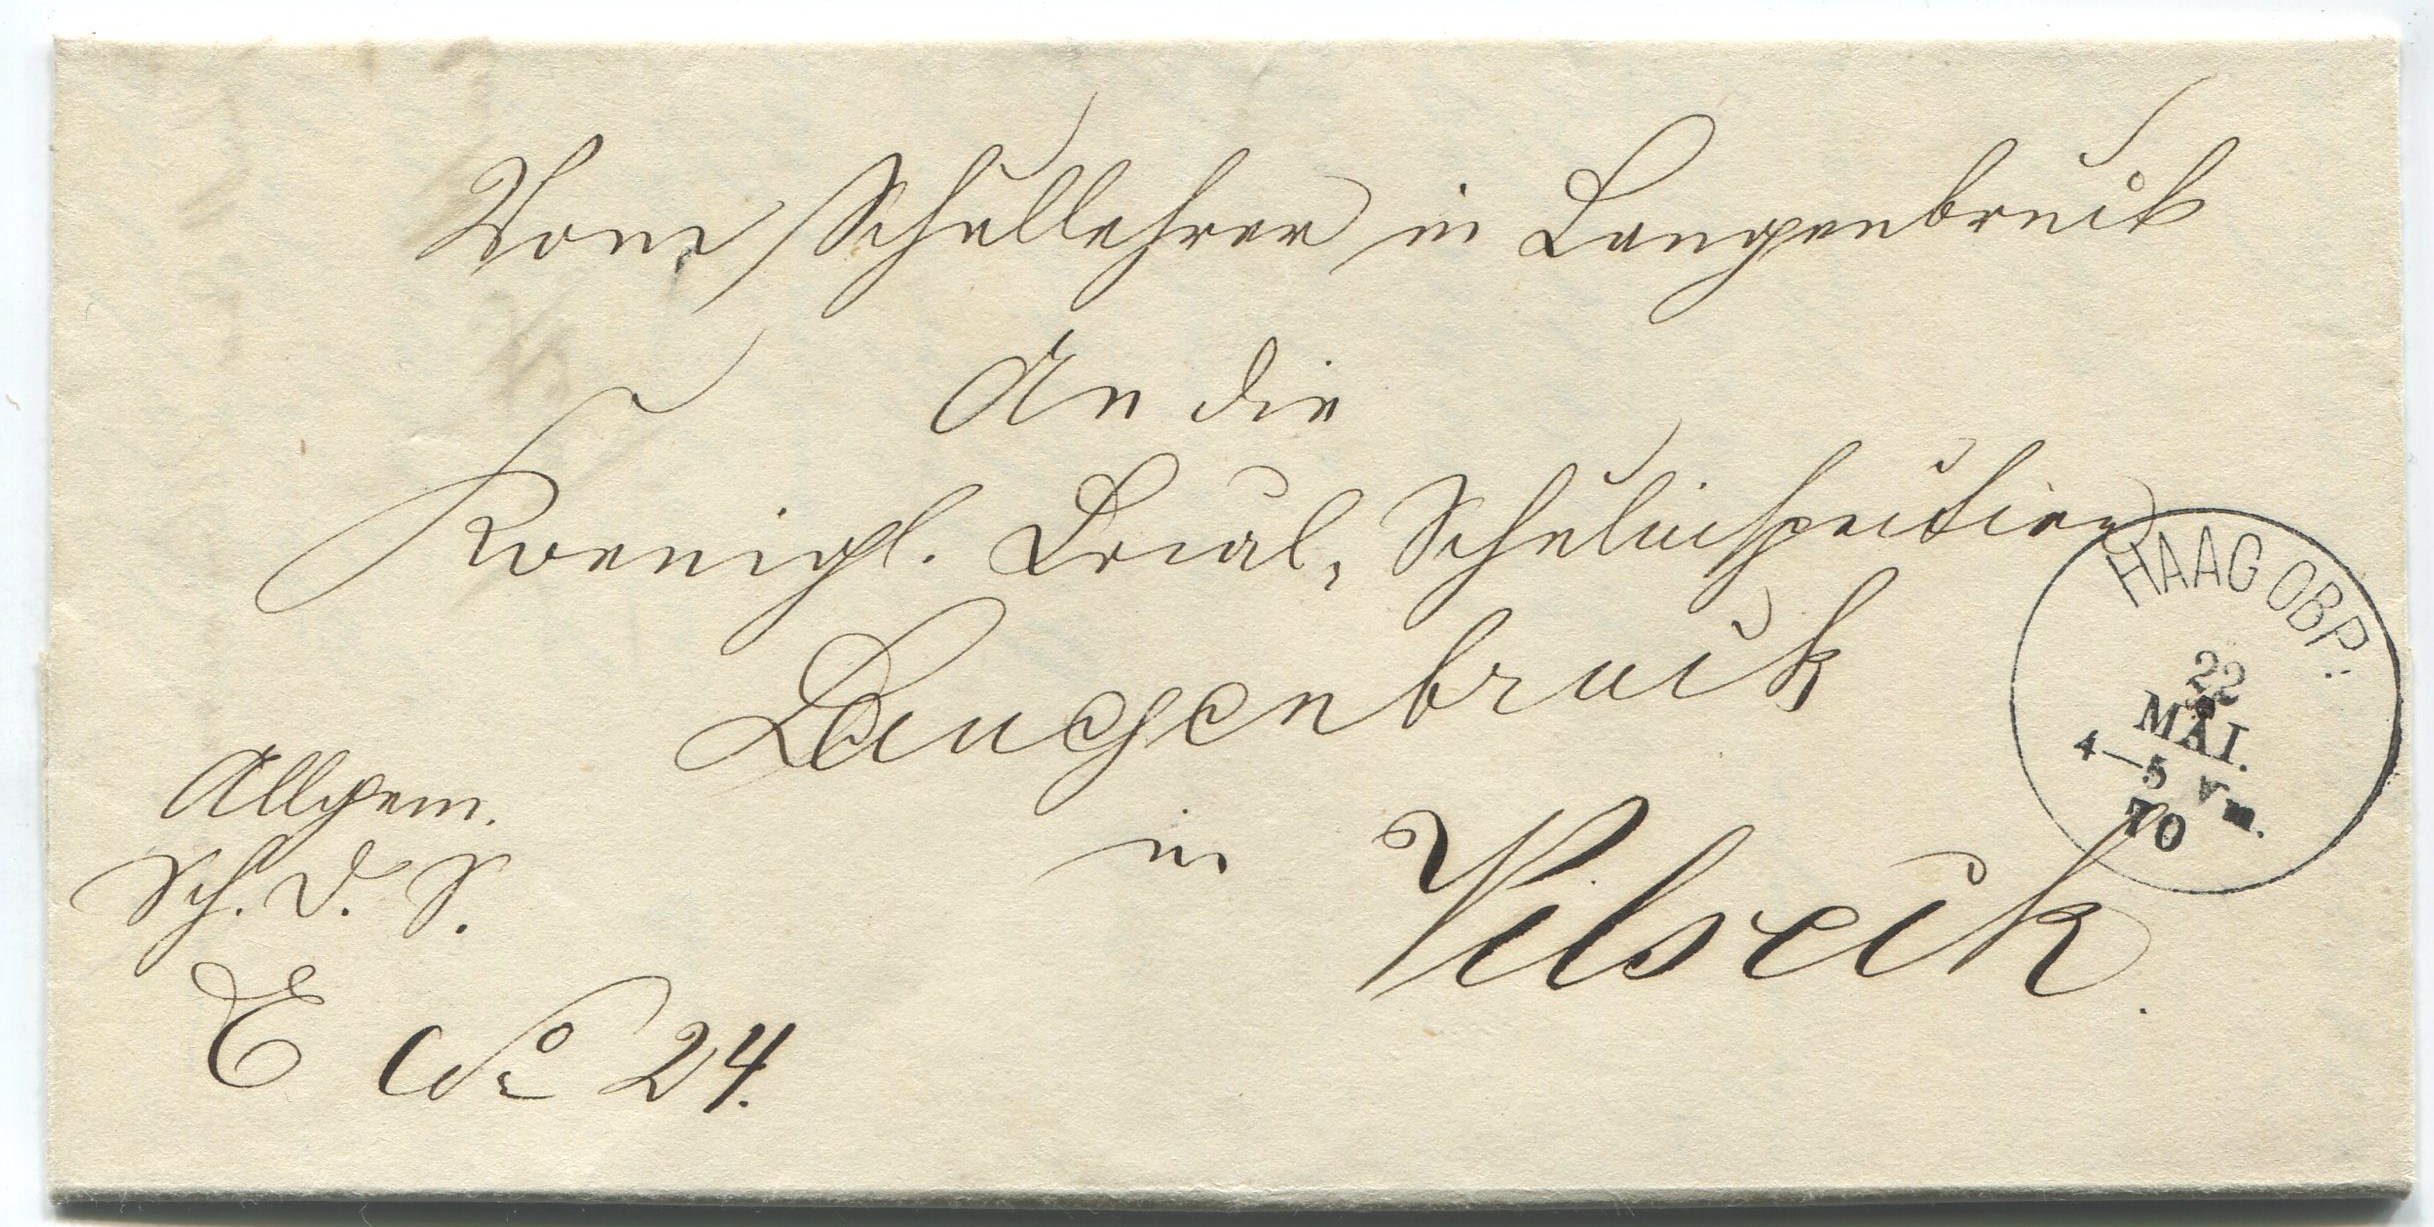 Vom Schullehrer in Langenbruck
An die
Koenigl. Local, Schulinspection
Langenbruck
in Vilseck.
Allgem.
Sch. D. S.
E No 24.
HAAG OBP.
22
MAI.
4—5 Vm.
70